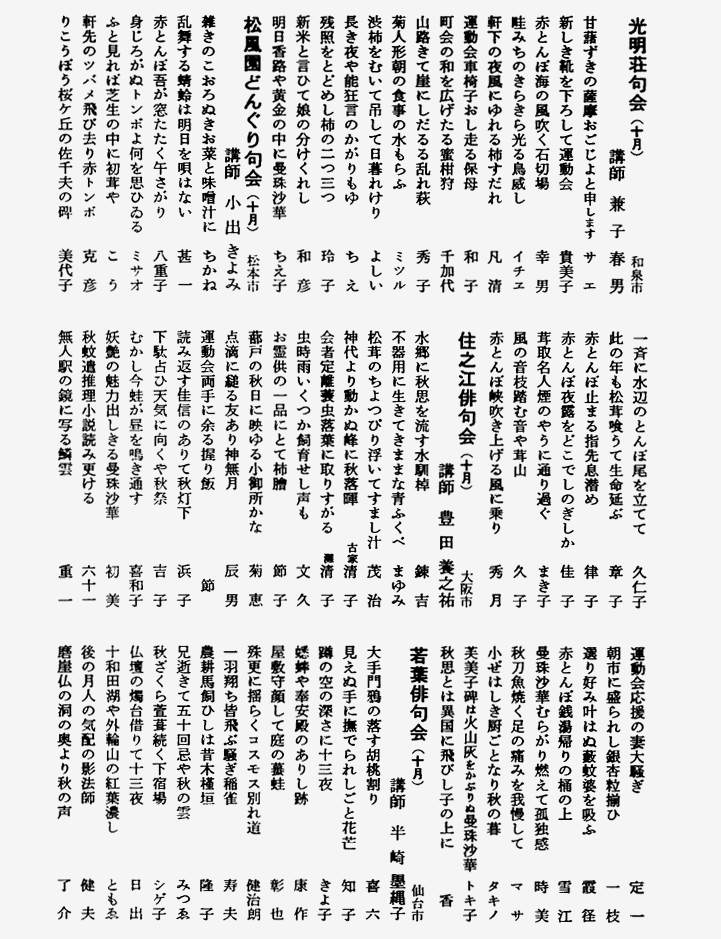 光明荘句会（十月）
和泉市
講師 兼子春男
甘藷ずきの薩摩おごじよと申します サエ
新しき靴を下ろして運動会 貴美子
赤とんぼ海の風吹く石切場 幸男
畦みちのきらきら光る鳥威し イチヱ
軒下の夜風にゆれる柿すだれ 凡清
運動会車椅子おし走る保母 和子
町会の和を広げたる蜜柑狩 千加代
山路きて崖にしだるる乱れ萩 秀子
菊人形朝の食事の水もらふ ミツル
渋柿をむいて吊して日暮れけり よしい
長き夜や能狂言のかがりもゆ ちえ
残照をとどめし柿の二つ三つ 玲子
新米と言ひて娘の分けくれし 和彦
明日香路や黄金の中に曼珠沙華 ちえ子
松風園どんぐり句会（十月）
松本市
講師 小出きよみ
雑きのこおろぬきお菜と味噌汁に ちかね
乱舞する蜻蛉は明日を唄はない 甚一
赤とんぼ吾が窓たたく午さがり 八重子
身じろがぬトンボよ何を思ひゐる ミサオ
ふと見れば芝生の中に初茸や こう
軒先のツバメ飛び去り赤トンボ 克彦
りこうぼう桜ケ丘の佐千夫の碑 美代子
一斉に水辺のとんぼ尾を立てて 久仁子
此の年も松茸喰うて生命延ぶ 章子
赤とんぼ止まる指先息潜め 律子
赤とんぼ夜露をどこでしのぎしか 佳子
茸取名人煙のやうに通り過ぐ まき子
風の音枝踏む音や茸山 久子
赤とんぼ峡吹き上げる風に乗り 秀月
住之江俳句会（十月）
大阪市
講師 豊田養之祐
水郷に秋思を流す水馴棹 錬吉
不器用に生きてきままな青ふくべ まゆみ
松茸のちよつぴり浮いてすまし汁 茂治
神代より動かぬ峰に秋落暉 古家清子
会者定離蓑虫落葉に取りすがる 灘清子
虫時雨いくつか飼育せし声も 文久
お霊供の一品にとて柿膾 節子
蔀戸の秋日に映ゆる小御所かな 菊恵
点滴に縋る友あり神無月 辰男
運動会両手に余る握り飯 節
読み返す佳信のありて秋灯下 浜子
下駄占ひ天気に向くや秋祭 吉子
むかし今蛙が昼を鳴き通す 喜和子
妖艶の魅力出しきる曼珠沙華 初美
秋蚊遣推理小説読み更ける 六十一
無人駅の鏡に写る鱗雲 重一
運動会応援の妻大騒ぎ 定一
朝市に盛られし銀杏粒揃ひ 一枝
選り好み叶はぬ藪蚊婆を吸ふ 霞径
赤とんぼ銭湯帰りの桶の上 雪江
曼珠沙華むらがり燃えて孤独感 時美
秋刀魚焼く足の痛みを我慢して マサ
小ぜはしき厨ごとなり秋の暮 タキノ
芙美子碑は火山灰をかぶりぬ曼珠沙華 トキ子
秋思とは異国に飛びし子の上に 香
若葉俳句会（十月）
仙台市
講師 半崎墨縄子
大手門鴉の落す胡桃割り 喜六
見えぬ手に撫でられしごと花芒 知子
蹲の空の深さに十三夜 きよ子
蟋蟀や奉安殿のありし跡 康作
屋敷守顔して庭の蟇蛙 彰也
殊更に揺らくコスモス別れ道 健治朗
一羽翔ち皆飛ぶ騒ぎ稲雀 寿夫
農耕馬飼ひしは昔木槿垣 隆子
兄逝きて五十回忌や秋の雲 みつゑ
秋ざくら萱葺続く下宿場 シゲ子
仏壇の燭台借りて十三夜 日出
十和田湖や外輪山の紅葉濃し ともゑ
後の月人の気配の影法師 健夫
磨崖仏の洞の奥より秋の声 了介